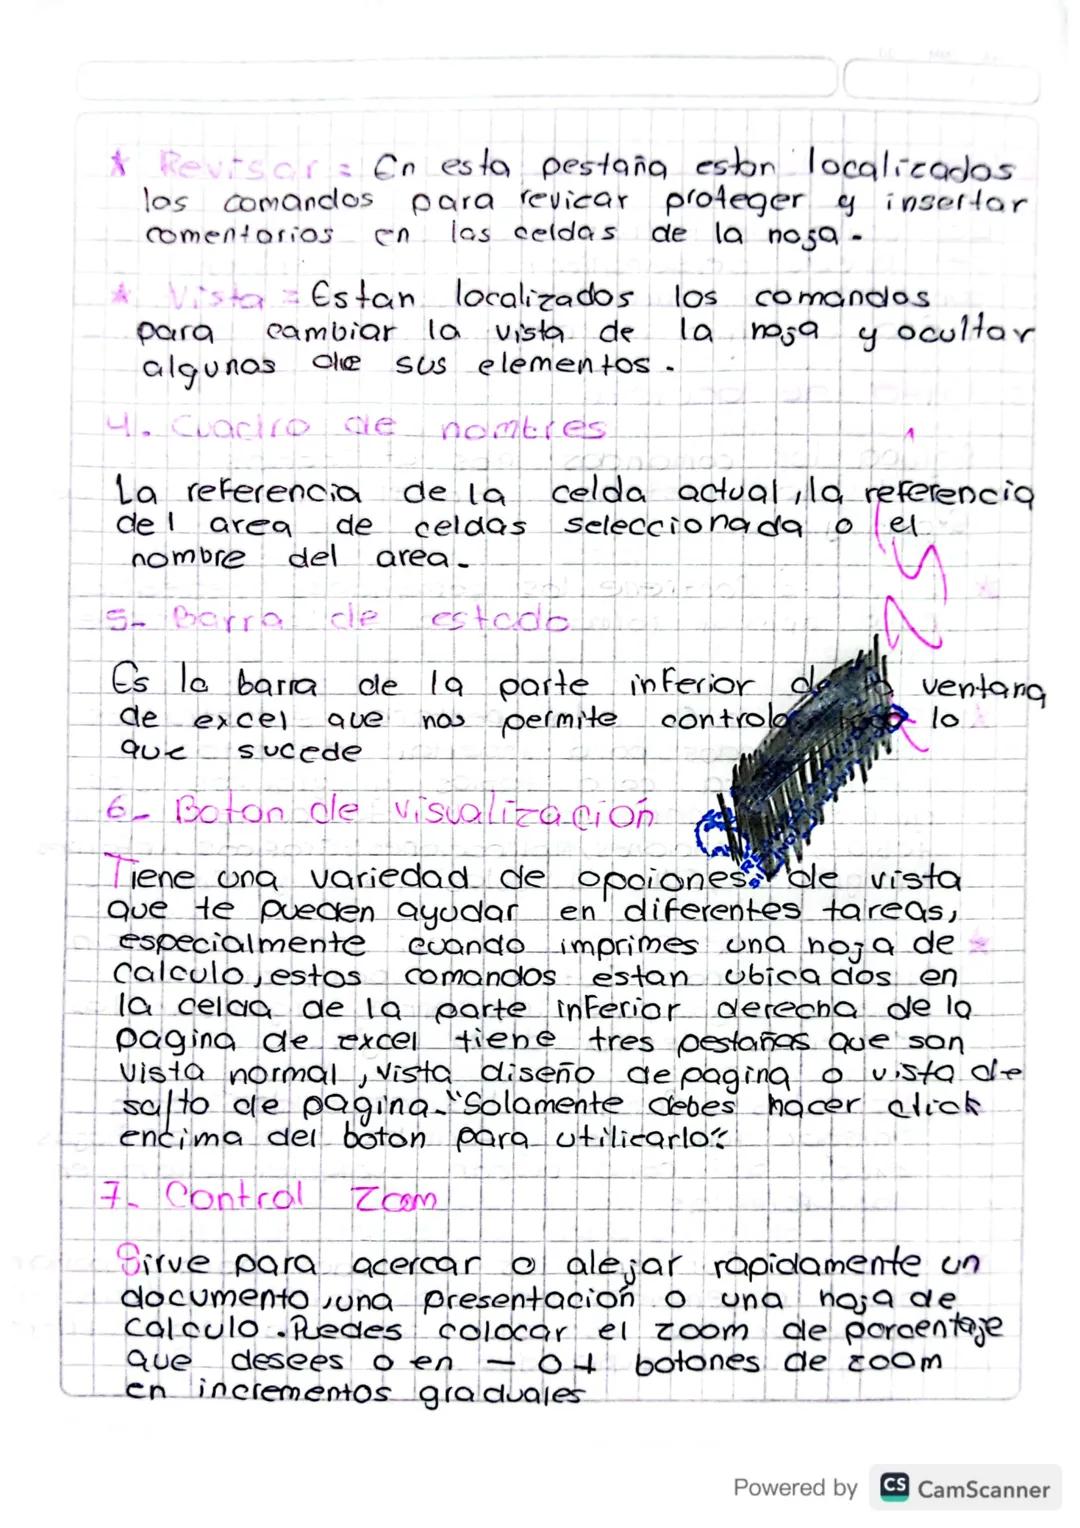 * Revisar = En esta pestaña estan localizados
los comandos para revicar proteger y insertar
comentarios en las celdas de la hoja.
* Vista = Estan localizados los comandos
para cambiar la vista de la hoja y ocultar
algunos de sus elementos.
4. Cuadro de nombres
La referencia de la celda actual, la referencia
del area de celdas seleccionada o el
nombre del area.
5- Barra de estado
Es la barra de la parte inferior ventana
de excel que nos permite lo
que sucede
6- Boton de visualización
Tiene una variedad de opciones de vista
que te pueden ayudar en diferentes tareas,
especialmente cuando imprimes una hoja de
calculo, estos comandos estan ubicados en
la celda de la parte inferior derecha de la
pagina de excel tiene tres pestañas que son
vista normal, vista diseño de pagina o vista de
salto de pagina. "Solamente debes hacer click
encima del boton para utilicarlo"
7- Control Zoom
Sirve para acercar o alejar rapidamente un
documento, una presentación o una hoja de
calculo. Puedes colocar el zoom de porcentaje
que desees o en - o + botones de zoom
en incrementos graduales
Powered by CS CamScanner